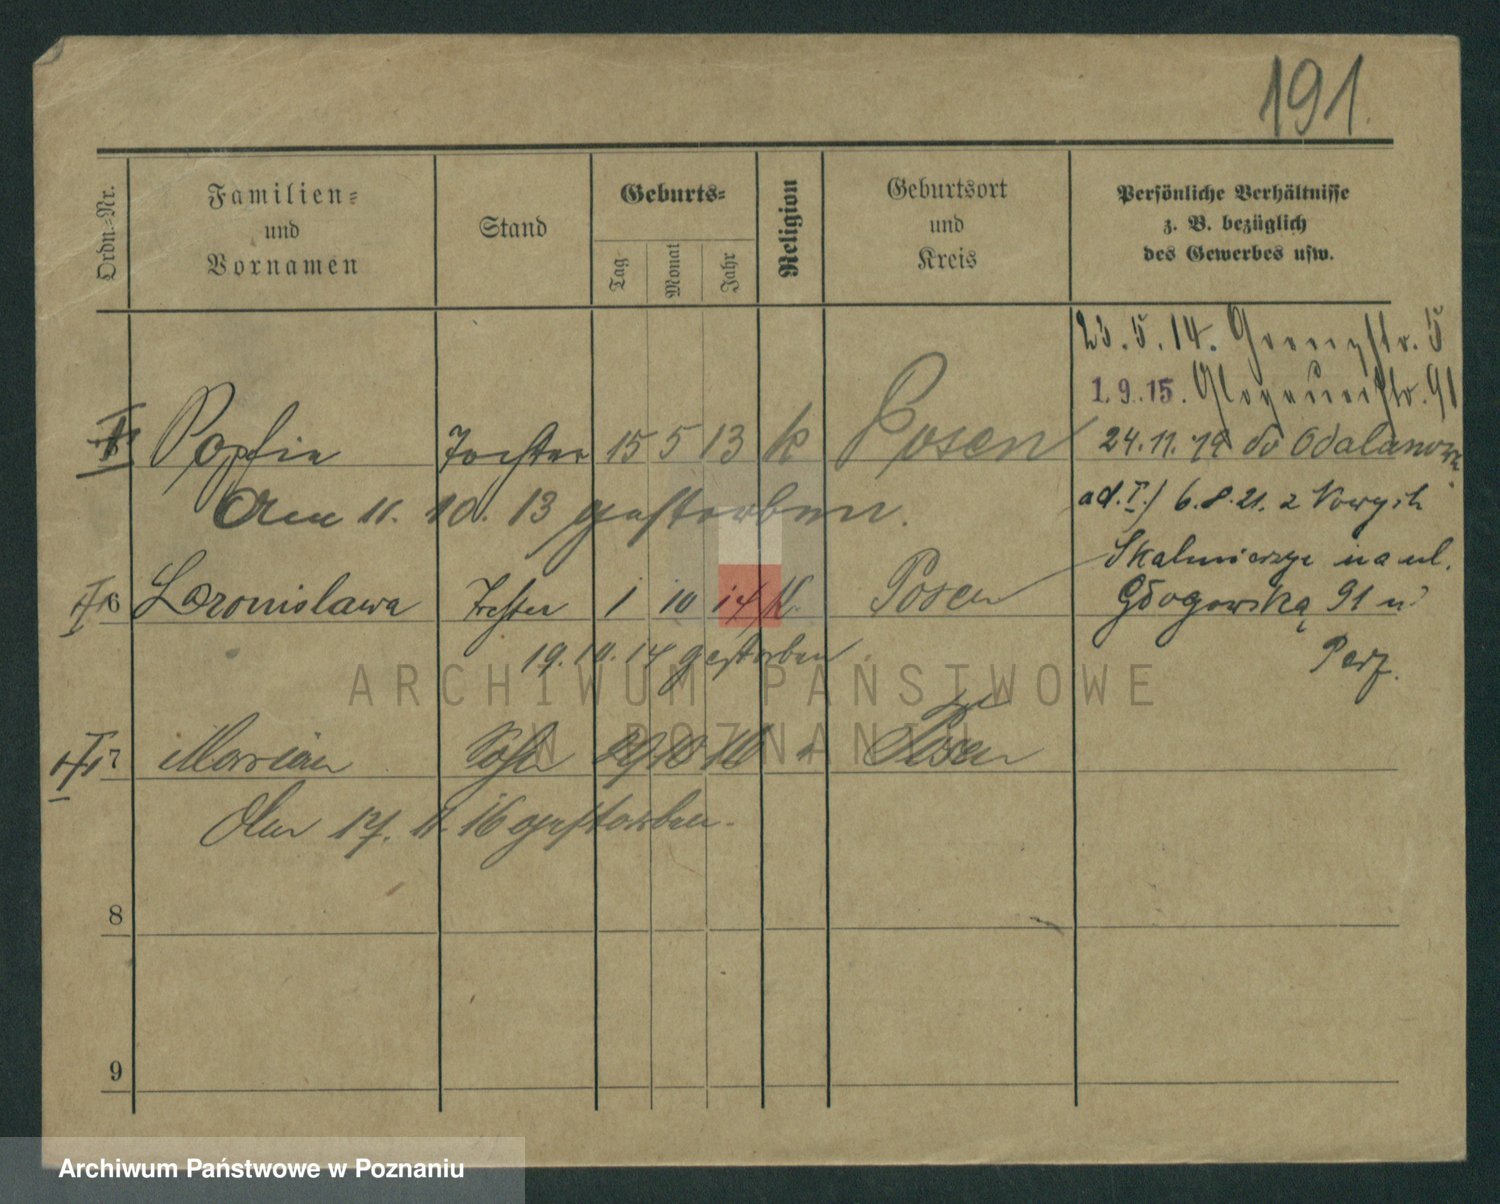 191.
Ordn.-Nr.
Familien-
und
Vornamen
Stand
Geburts-
Tag
Monat
Jahr
Religion
Geburtsort
und
Kreis
Persönliche Verhältnisse
z. B. bezüglich
des Gewerbes usw.
23.5.14. str. 5
1.9.15. Glogauerstr. 91
Sofie Tochter 15 5 13 k Posen
24.11.19 do Odalanowa
Am 11. 10. 13 gestorben.
ad. I./ 6.8.21. z Nowych
Skalmierzyc na ul.
6 Bronislawa Tochter 1 10 14 K. Posen
Głogowską 91 u
19.10.14 gestorben
7 Marian Sohn 29 10 16 Posen
Am 17. 11. 16 gestorben.
8
9
ARCHIWUM PAŃSTWOWE
W POZNANIU
Archiwum Państwowe w Poznaniu